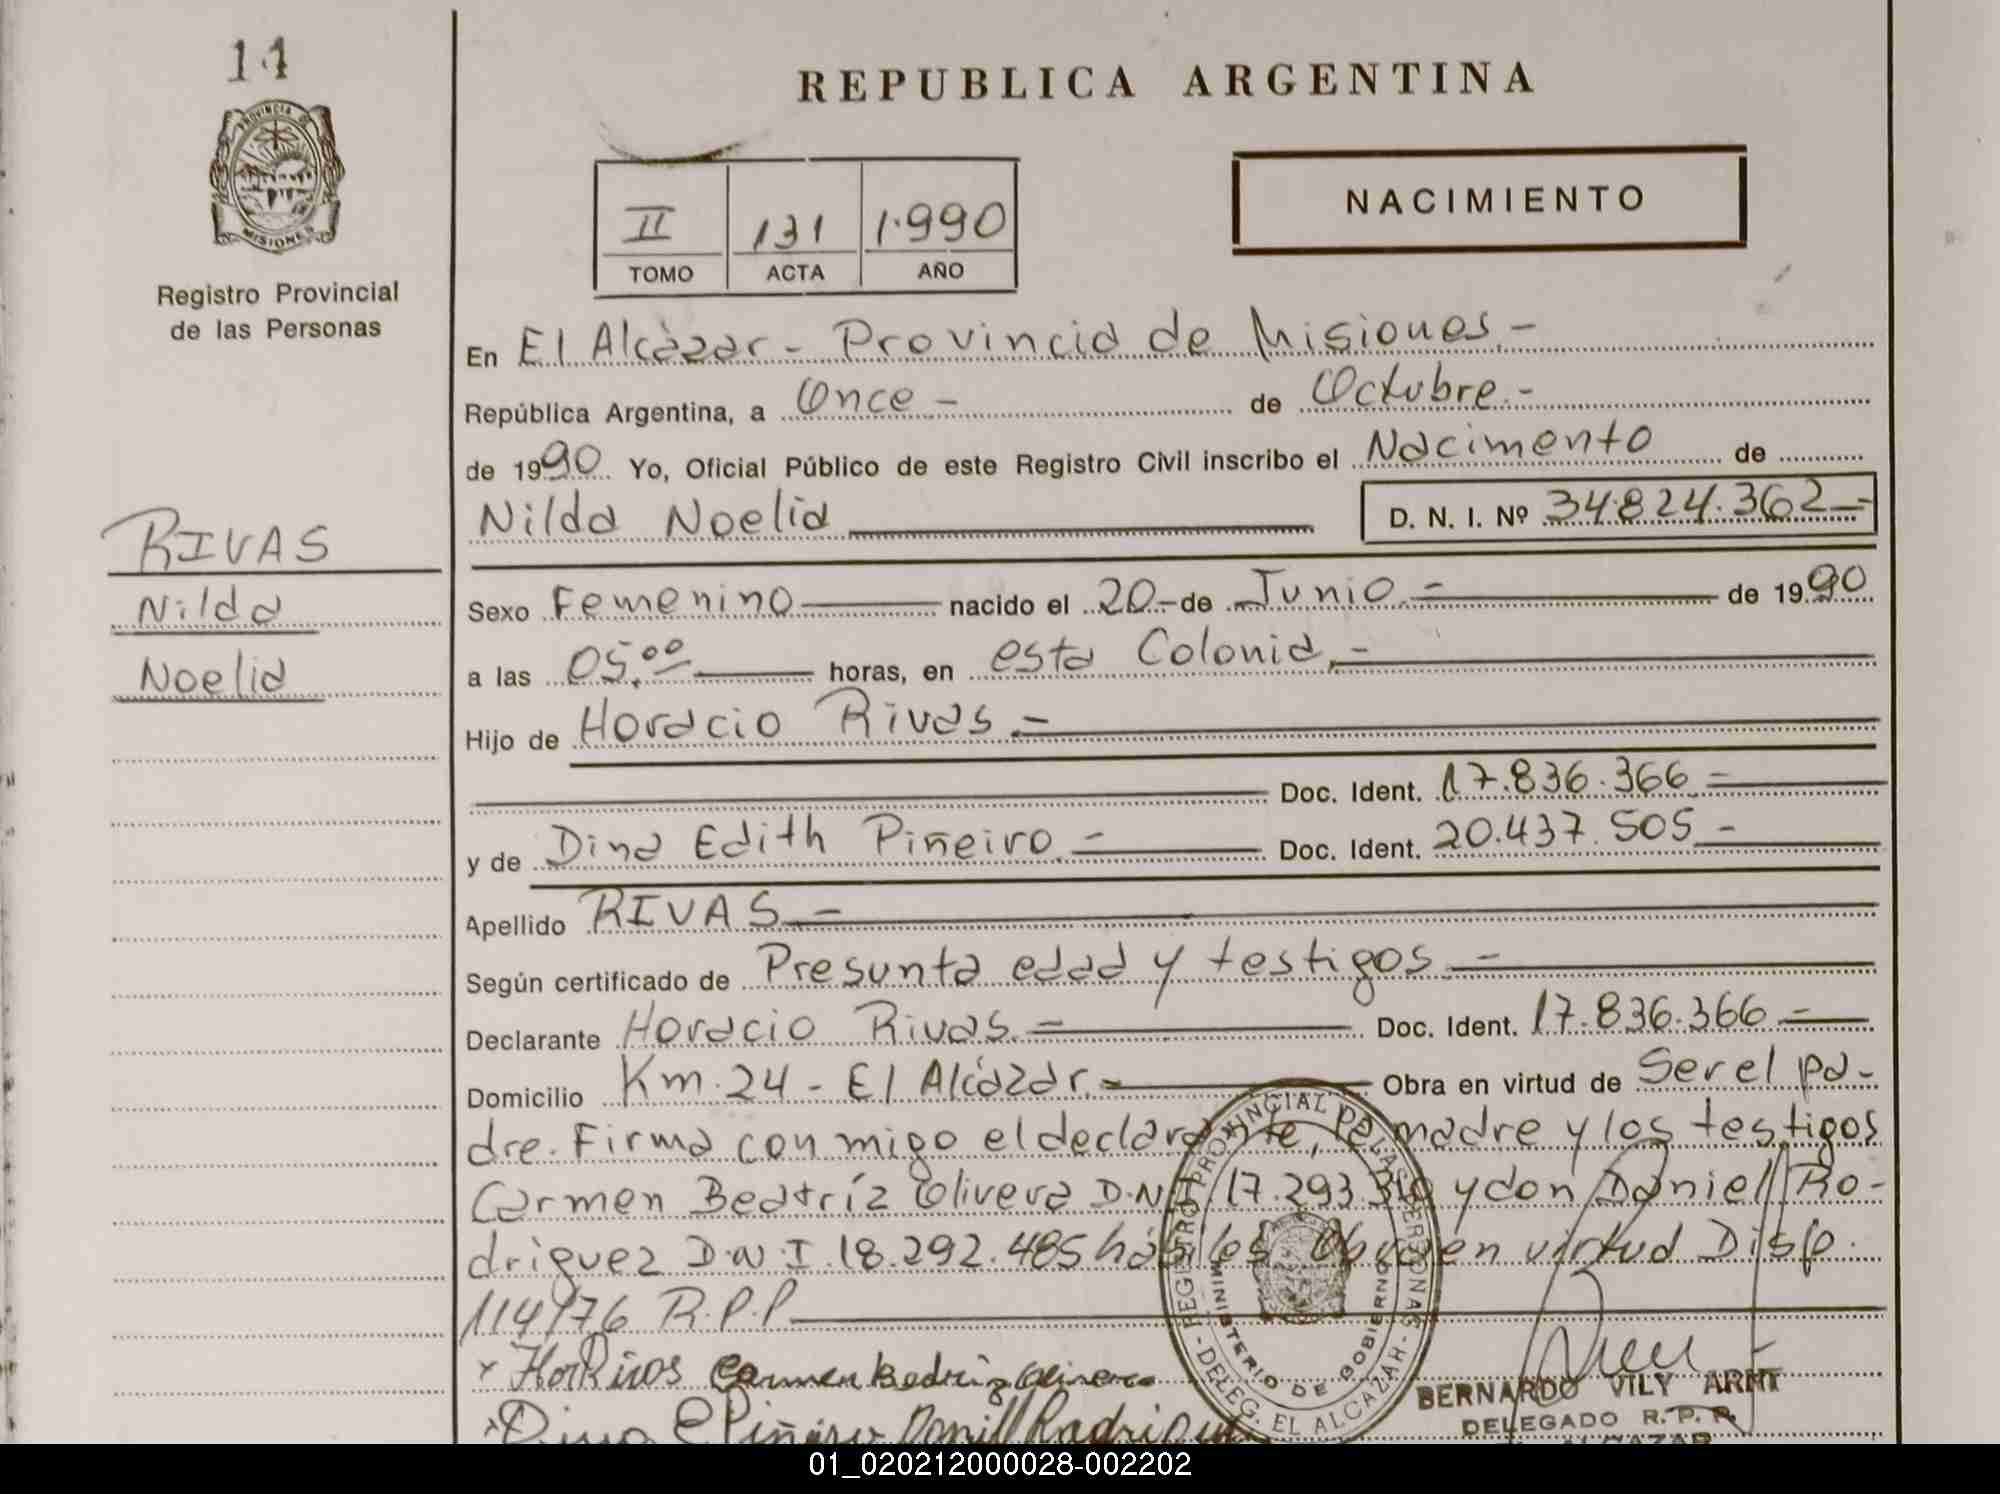 14
PROVINCIA DE
MISIONES
Registro Provincial
de las Personas
REPUBLICA ARGENTINA
NACIMIENTO
II 131 1.990
TOMO ACTA AÑO
RIVAS
Nilda
Noelia
En El Alcázar - Provincia de Misiones.-
República Argentina, a Once - de Octubre.-
de 1990. Yo, Oficial Público de este Registro Civil inscribo el Nacimento de
Nilda Noelia D. N. I. Nº 34.824.362-
Sexo Femenino nacido el 20- de Junio.- de 1990
a las 05.00 horas, en esta Colonia.-
Hijo de Horacio Rivas.-
Doc. Ident. 17.836.366-
y de Dina Edith Piñeiro.- Doc. Ident. 20.437.505-
Apellido RIVAS.-
Según certificado de Presunta edad y testigos.-
Declarante Horacio Rivas.- Doc. Ident. 17.836.366-
Domicilio Km. 24 - El Alcázar.- Obra en virtud de Ser el pa-
dre. Firma con migo el declarante, la madre y los testigos
Carmen Beatríz Olivera D.N.I 17.293. y don Daniel Ro-
driguez D.N.I. 18.292.485 hábiles Obra en virtud Disp.
114/76 R.P.P
x HorRivas Carmen Beatriz Olivera
x Dina E Piñeiro Daniel Rodriguez
REGISTRO PROVINCIAL DE LAS PERSONAS
MINISTERIO DE GOBIERNO
- DELEG. EL ALCAZAR -
BERNARDO VILY ARNT
DELEGADO R. P. P.
ALCAZAR
01_020212000028-002202